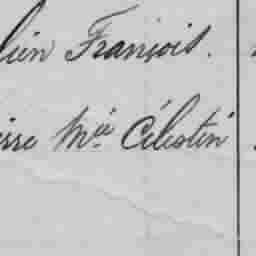 lien François.
ierre Mie Célestin